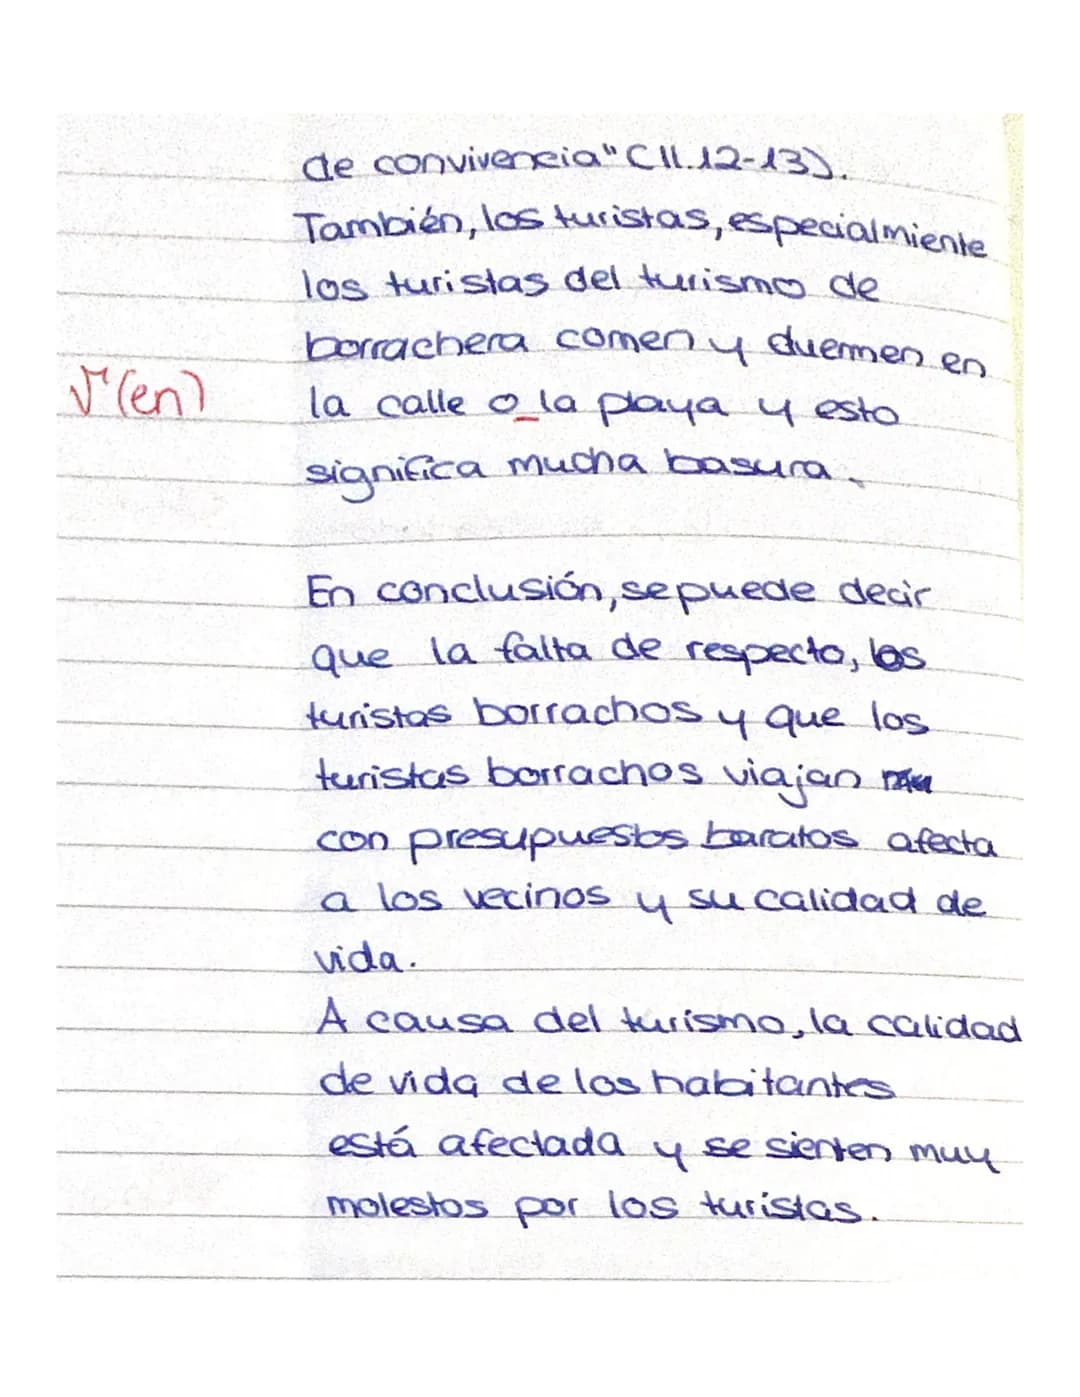 de convivencia" (ll.12-13).
También, los turistas, especialmiente
los turistas del turismo de
borrachera comen y duermen en
√ (en) la calle o la playa y esto
significa mucha basura.
En conclusión, se puede decir
que la falta de respecto, los
turistas borrachos y que los
turistas borrachos viajan
con presupuestos baratos afecta
a los vecinos y su calidad de
vida.
A causa del turismo, la calidad
de vida de los habitantes
está afectada y se sienten muy
molestos por los turistas.